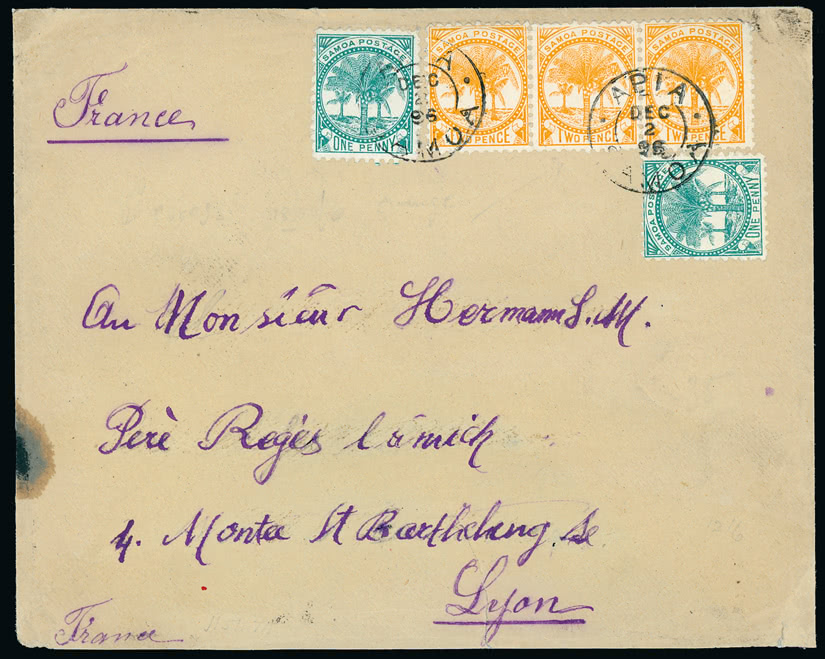 SAMOA POSTAGE
ONE PENNY
SAMOA POSTAGE
TWO PENCE
SAMOA POSTAGE
TWO PENCE
SAMOA POSTAGE
TWO PENCE
APIA
DEC
2
96
SAMOA
APIA
DEC
2
96
SAMOA
SAMOA POSTAGE
ONE PENNY
France
Au Monsieur Hermann S. M.
Père Regés
4. Monta St Barthelung de
Lyon
France